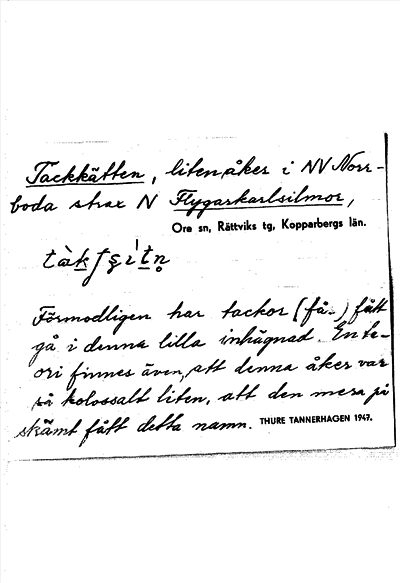 Tackkätten, liten åker i NV Norr-
boda strax N Flygarkarlsilmor,
Ore sn, Rättviks tg, Kopparbergs län.
Förmodligen har tackor (få-) fått
gå i denna lilla inhägnad. En te-
ori finnes även, att denna åker var
så kolossalt liten, att den mera på
skämt fått detta namn. THURE TANNERHAGEN 1947.